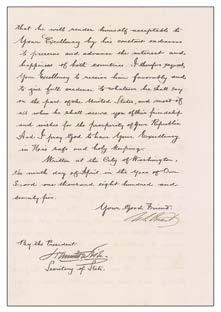 that he will render himself acceptable to
Your Excellency by his constant endeavor
to preserve and advance the interest and
happiness of both countries. I therefore request
Your Excellency to receive him favorably and
to give full credence to whatever he shall say
on the part of the United States, and most of
all when he shall assure you of their friendship
and wishes for the prosperity of your Republic
And I pray God to have Your Excellency
in His safe and holy keeping.
Written at the City of Washington,
the ninth day of April in the Year of Our
Lord one thousand eight hundred and
seventy-five.
Your Good Friend,
U. S. Grant
By the President
Hamilton Fish
Secretary of State.